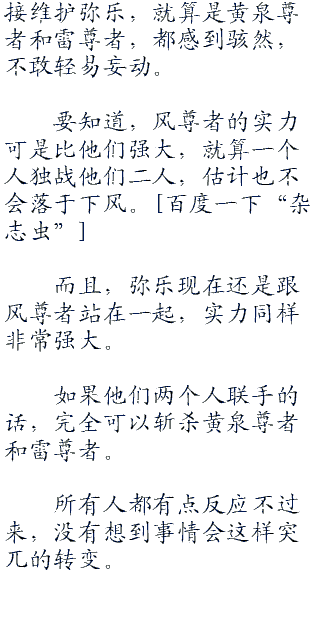 接维护弥乐，就算是黄泉尊
者和雷尊者，都感到骇然，
不敢轻易妄动。
要知道，风尊者的实力
可是比他们强大，就算一个
人独战他们二人，估计也不
会落于下风。[百度一下“杂
志虫”]
而且，弥乐现在还是跟
风尊者站在一起，实力同样
非常强大。
如果他们两个人联手的
话，完全可以斩杀黄泉尊者
和雷尊者。
所有人都有点反应不过
来，没有想到事情会这样突
兀的转变。